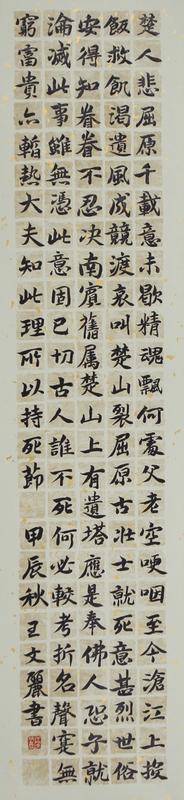 楚人悲屈原千載意未歇精魂飄何處父老空哽咽至今滄江上投
飯救飢渴遺風成競渡哀叫楚山裂屈原古壯士就死意甚烈世俗
安得知眷眷不忍决南賓舊属楚山上有遺塔應是奉佛人恐子就
淪滅此事雖無憑此意固已切古人誰不死何必較考折名聲寔無
窮富貴亦暫熱大夫知此理所以持死節
甲辰秋王文麗書